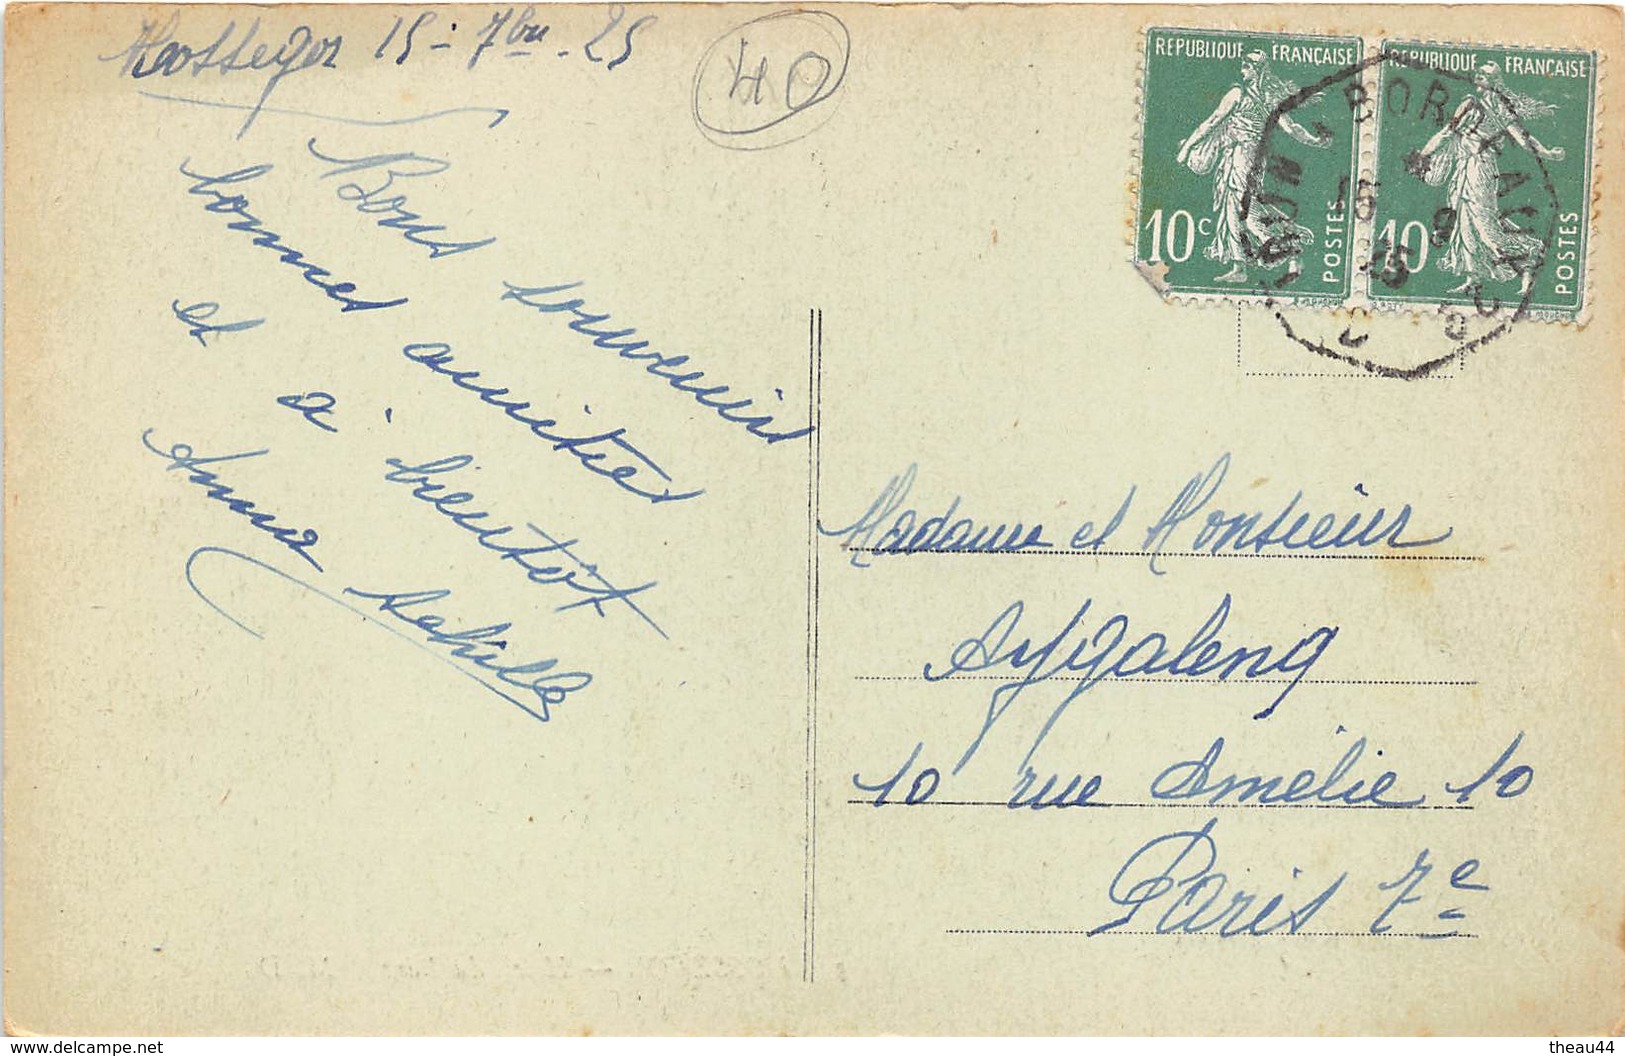 Hossegor 15-7bre-25
40
Bons souvenirs
bonnes amitiés
et à bientôt
Anna Achille
REPUBLIQUE FRANÇAISE
10c POSTES
REPUBLIQUE FRANÇAISE
10c POSTES
BORDEAUX
IRUN
15 9
25
Madame et Monsieur
Ayğaleng
10 rue Amélie 10
Paris 7e
https://www.delcampe.net
theau44